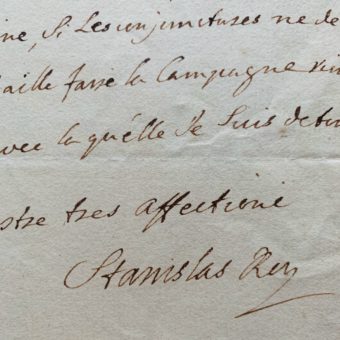 ne, si Les conjunctures ne de
aille faire la Campagne
avec la quélle Je Suis de
stre tres affectioné
Stanislas Roy